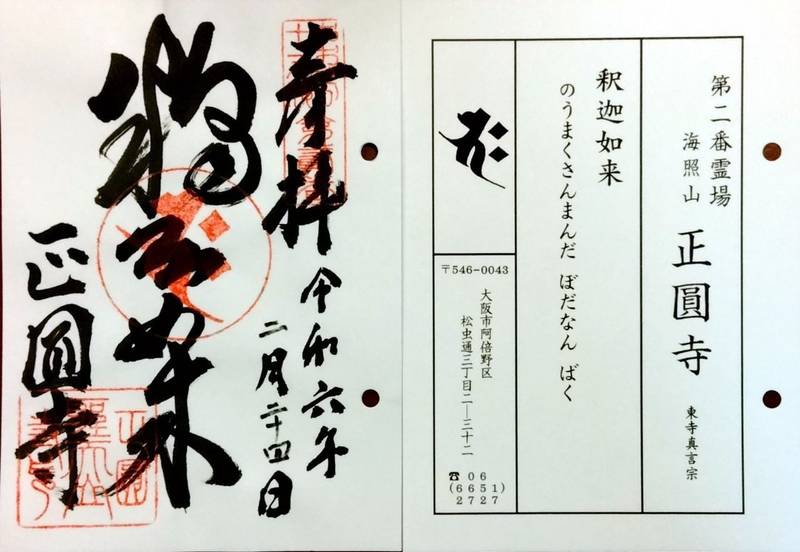 第二番霊場
海照山
正圓寺
東寺真言宗
釈迦如来
のうまくさんまんだ ぼだなん ばく
〒546-0043
大阪市阿倍野区
松虫通三丁目二―三十二
☎06
(6651)
2727
奉拝
令和六年
二月二十四日
釋迦如来
正圓寺